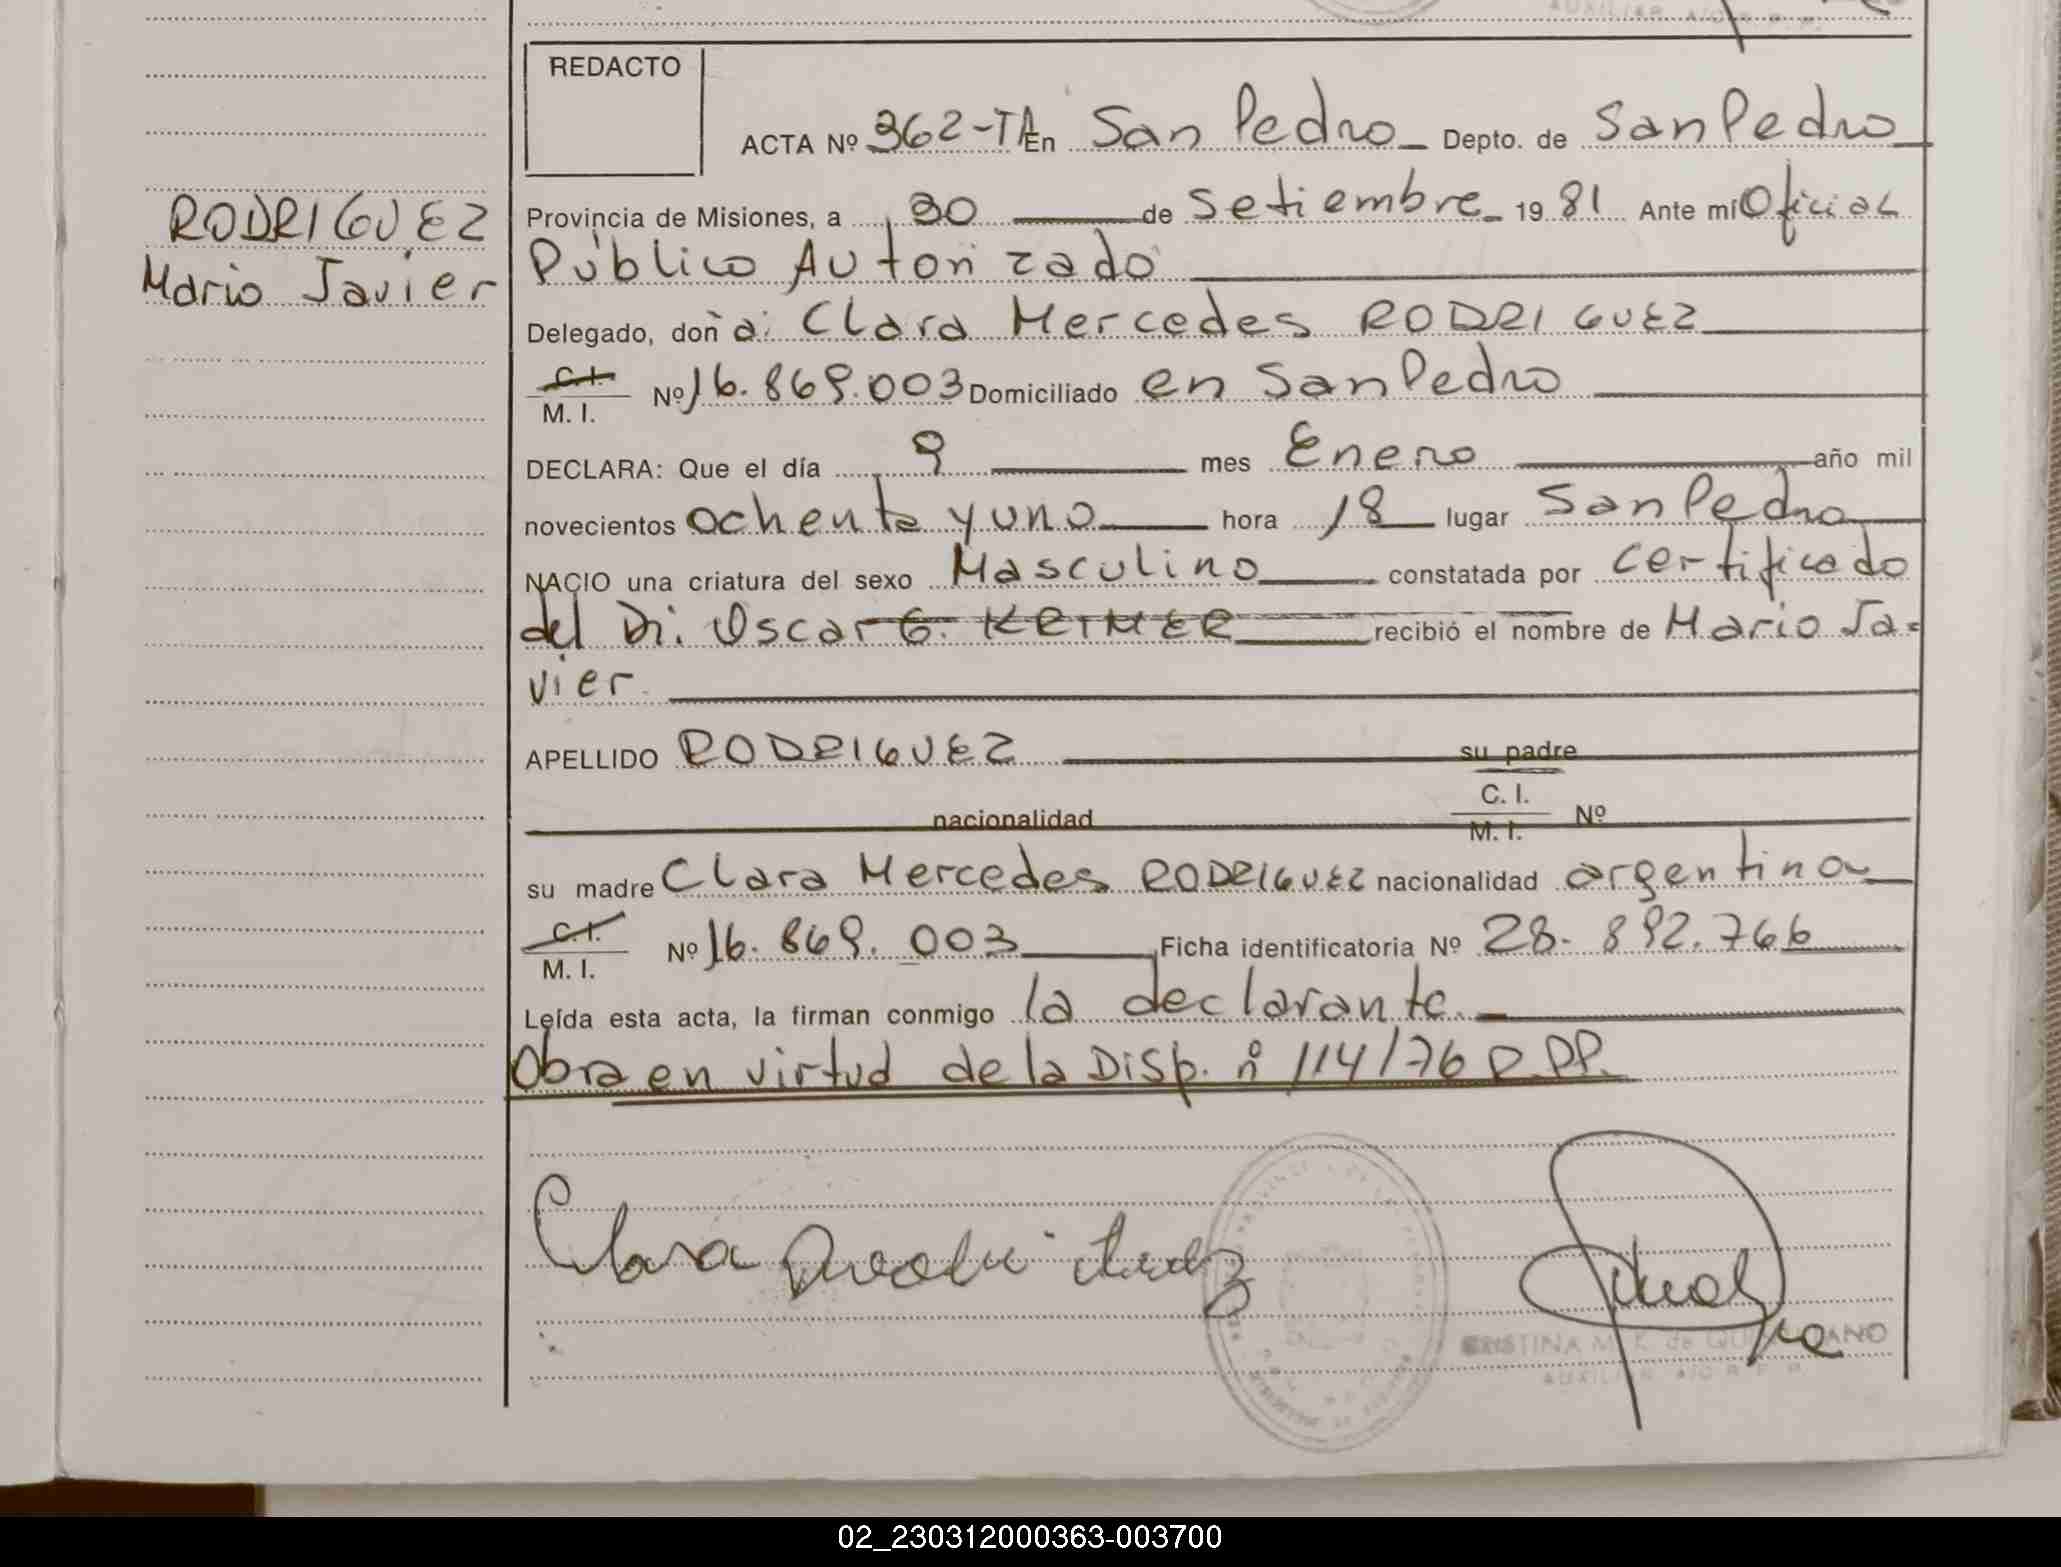 AUXILIAR A/C R. P.
REDACTO
ACTA Nº 362-TA En San Pedro Depto. de San Pedro
RODRIGUEZ
Mario Javier
Provincia de Misiones, a 30 de Setiembre 19 81 Ante mí Oficial
Público Autorizado
Delegado, doñ a: Clara Mercedes RODRIGUEZ
C.I.
M. I. Nº 16.869.003 Domiciliado en San Pedro
DECLARA: Que el día 9 mes Enero año mil
novecientos ochenta y uno hora 18 lugar San Pedro
NACIO una criatura del sexo Masculino constatada por certificado
del Dr. Oscar G. KRIMER recibió el nombre de Mario Ja=
vier.
APELLIDO RODRIGUEZ su padre
nacionalidad C. I.
M. I. Nº
su madre Clara Mercedes RODRIGUEZ nacionalidad argentina
C.I.
M. I. Nº 16.869.003 Ficha identificatoria Nº 28.892.766
Leída esta acta, la firman conmigo la declarante.
Obra en virtud de la Disp. nº 114/76 R.PP.
Clara
CRISTINA M. K. de
AUXILIAR A/C R. P.
02_230312000363-003700